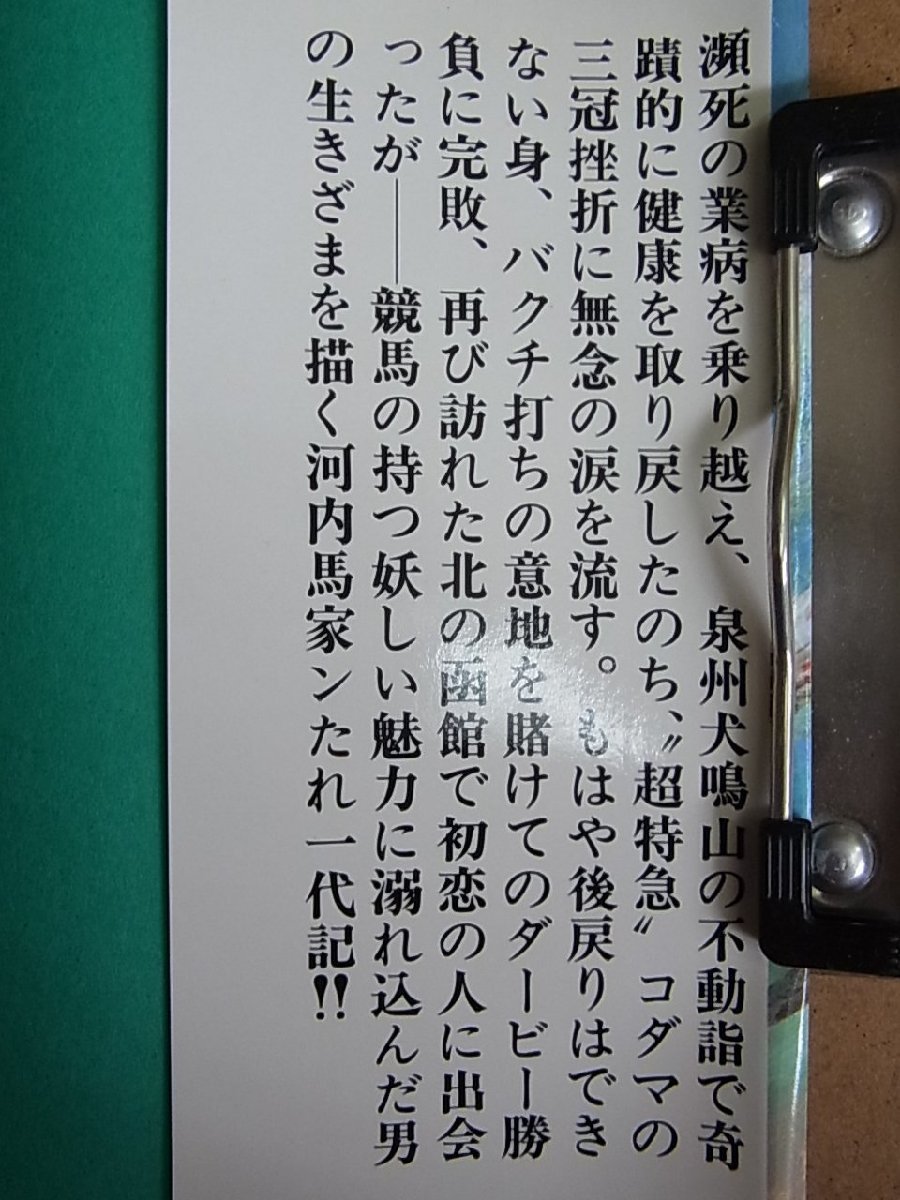 瀕死の業病を乗り越え、泉州犬鳴山の不動詣で奇
蹟的に健康を取り戻したのち、〝超特急〟コダマの
三冠挫折に無念の涙を流す。もはや後戻りはでき
ない身、バクチ打ちの意地を賭けてのダービー勝
負に完敗、再び訪れた北の函館で初恋の人に出会
ったが――競馬の持つ妖しい魅力に溺れ込んだ男
の生きざまを描く河内馬家ンたれ一代記!!